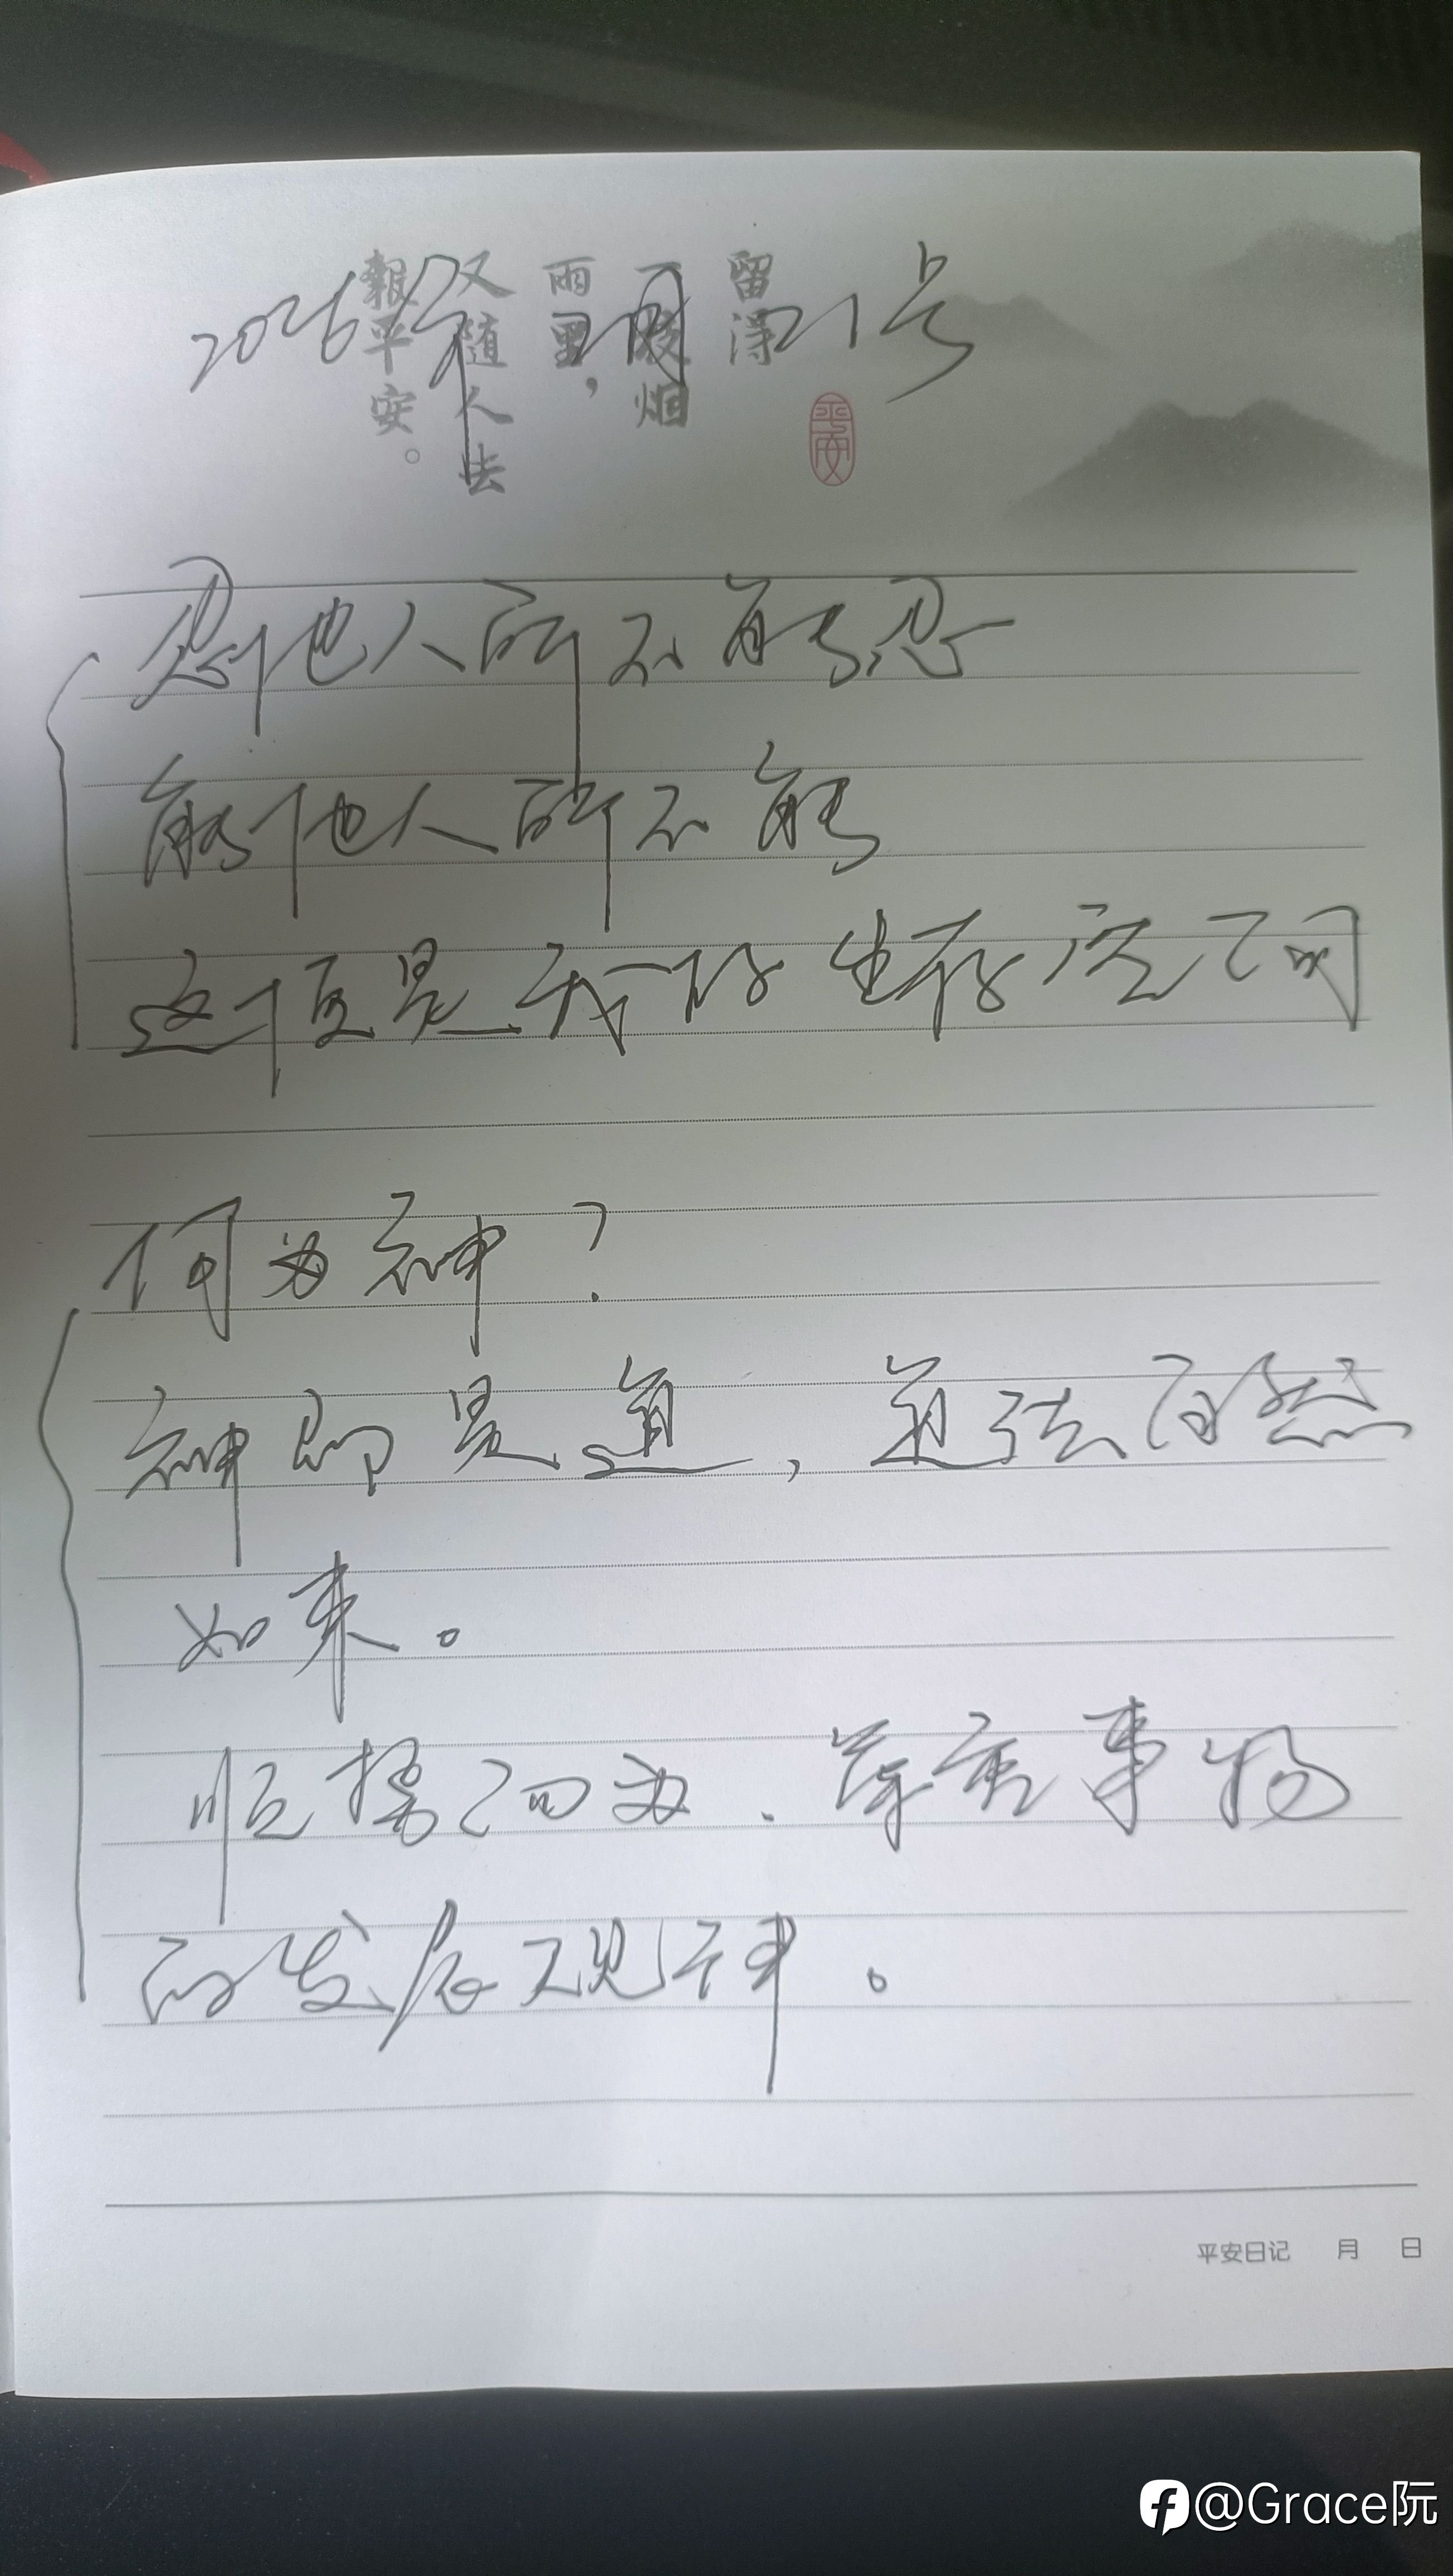 2026年2月21号
留得
一蓑烟
雨里，
又随人去
報平安。
平安
忍他人所不能忍
能他人所不能
这便是我的生存法则
何为神？
神即是道，道法自然
如来。
顺势而为、尊重事物
的发展规律。
平安日记 月 日
@Grace阮